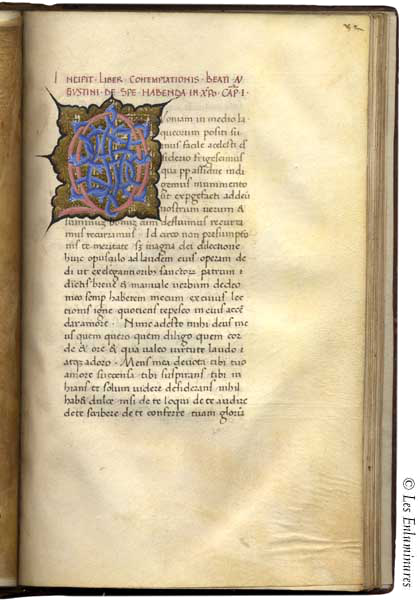 INCIPIT · LIBER CONTEMPLATIONIS · BEATI AV
GVSTINI · DE SPE HABENDA IN XPO CAP I ·
Qoniam in medio la
queorum positi su
mus facile acelesti d
siderio frigescimus
qua ppt assidue indi
gemus munimento
ut expgefacti addeu
nostrum verum &
summum bonum cum defluimus recurra
mus recurramus · Id circo non presumptio
nis temeritate sz magna dei dilectione
huic opusculo ad laudem eius operam de
di ut ex elegantioribus sanctorz patrum
dictis breve & manuale verbum dedeo
meo semp haberem mecum excuius lec
tionis igne quotiens tepesco in eius accen
dar amore · Nunc adesto mihi deus me
us quem quero quem diligo quem cor
de & ore & qua valeo virtute laudo
atq adoro · Mens mea devota tibi tuo
amore succensa tibi suspirans tibi in
hians te solum videre desiderans nihil
hab& dulce nisi de te loqui de te audire
de te scribere de te conferre tuam gloria
© Les Enluminures